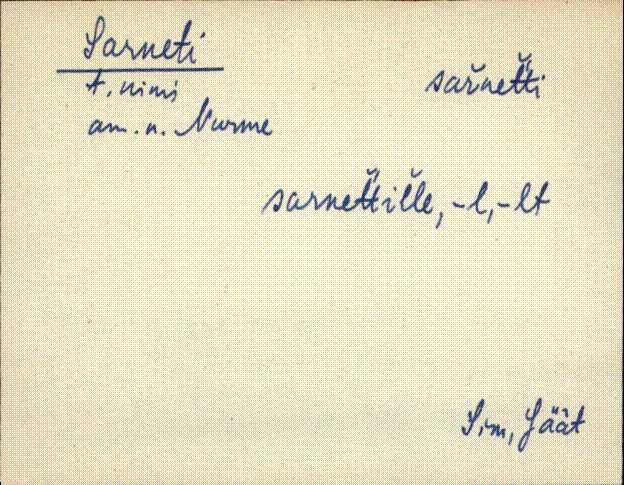 Sarneti
t. nimi
am. n. Nurme
sařnet̆t̆i
sarnet̆t̆il̆le, -l, -lt
Sim, Jäät